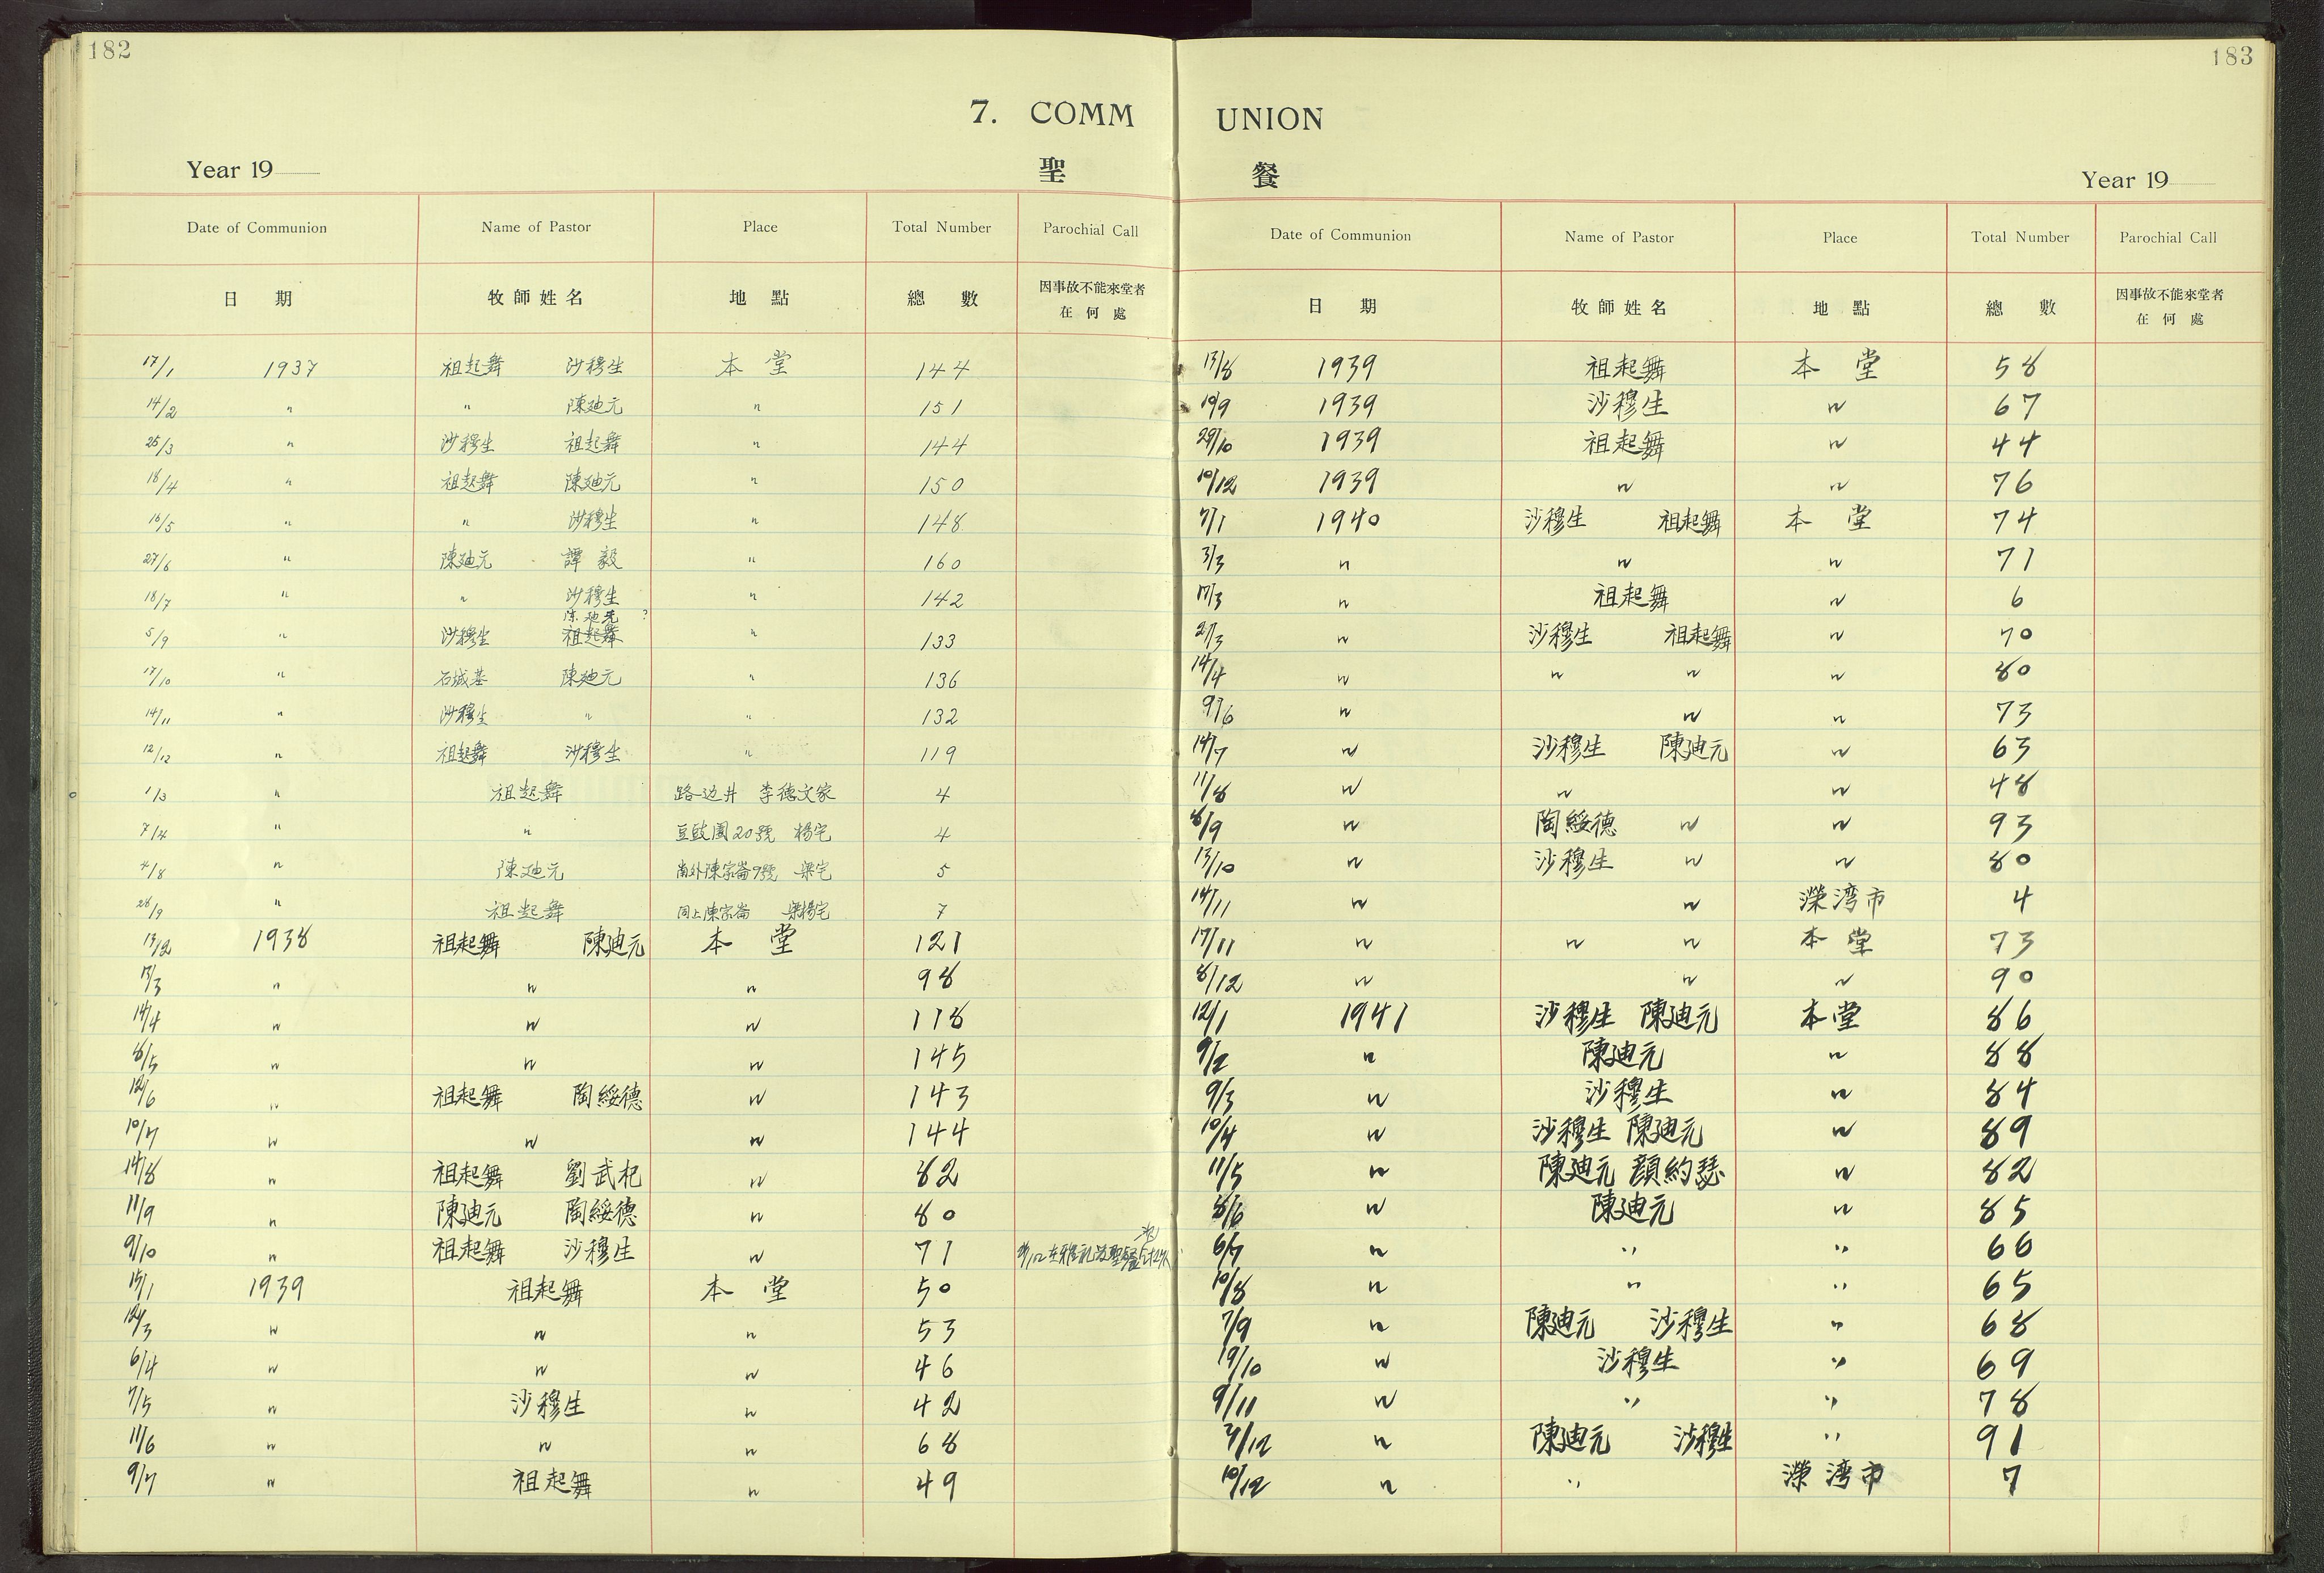 182
7. COMM
Year 19
聖
Date of Communion Name of Pastor Place Total Number Parochial Call
日 期 牧師姓名 地 點 總 數 因事故不能來堂者
在何處
17/1 1937 祖起舞 沙穆生 本 堂 144
14/2 〃 〃 陳廸元 〃 151
25/3 〃 沙穆生 祖起舞 〃 144
18/4 〃 祖起舞 陳廸元 〃 150
16/5 〃 〃 沙穆生 〃 148
27/6 〃 陳廸元 譚 毅 〃 160
18/7 〃 〃 沙穆生 〃 142
陳廸元 ?
5/9 〃 沙穆生 祖起舞 〃 133
17/10 〃 石城基 陳廸元 〃 136
14/11 〃 沙穆生 〃 〃 132
12/12 〃 祖起舞 沙穆生 〃 119
1/3 〃 祖起舞 路边井 李德文家 4
7/4 〃 〃 豆豉園20號 楊宅 4
4/8 〃 陳廸元 南外陳家崙9號 梁宅 5
26/9 〃 祖起舞 同上陳家崙 梁楊宅 7
13/2 1938 祖起舞 陳廸元 本 堂 121
13/3 〃 〃 〃 98
14/4 〃 〃 〃 118
8/5 〃 〃 〃 145
12/6 〃 祖起舞 陶綏德 〃 143
10/7 〃 〃 〃 144
14/8 〃 祖起舞 劉武杞 〃 82
11/9 〃 陳廸元 陶綏德 〃 80
9/10 〃 祖起舞 沙穆生 〃 71
15/1 1939 祖起舞 本 堂 50
12/3 〃 〃 〃 53
6/4 〃 〃 〃 46
7/5 〃 沙穆生 〃 42
11/6 〃 〃 〃 68
9/7 〃 祖起舞 〃 49
183
UNION
餐
Year 19
Date of Communion Name of Pastor Place Total Number Parochial Call
日 期 牧師姓名 地 點 總 數 因事故不能來堂者
在何處
13/8 1939 祖起舞 本 堂 58
10/9 1939 沙穆生 〃 67
29/10 1939 祖起舞 〃 44
10/12 1939 〃 〃 76
7/1 1940 沙穆生 祖起舞 本 堂 74
3/3 〃 〃 〃 71
17/3 〃 祖起舞 〃 6
21/3 〃 沙穆生 祖起舞 〃 70
14/4 〃 〃 〃 〃 80
9/6 〃 〃 〃 73
14/7 〃 沙穆生 陳廸元 〃 63
11/8 〃 〃 〃 48
8/9 〃 陶綏德 〃 〃 93
13/10 〃 沙穆生 〃 〃 80
14/11 〃 〃 濚湾市 4
17/11 〃 〃 〃 本 堂 73
8/12 〃 〃 〃 90
12/1 1941 沙穆生 陳廸元 本堂 86
9/2 〃 陳廸元 〃 88
9/3 〃 沙穆生 〃 84
10/4 〃 沙穆生 陳廸元 〃 89
11/5 〃 陳廸元 顏約瑟 〃 82
8/6 〃 陳廸元 〃 85
6/7 〃 〃 〃 66
10/8 〃 〃 〃 65
7/9 〃 陳廸元 沙穆生 〃 68
19/10 〃 沙穆生 〃 69
9/11 〃 〃 〃 78
7/12 〃 陳廸元 沙穆生 〃 91
10/12 〃 〃 濚湾市 7